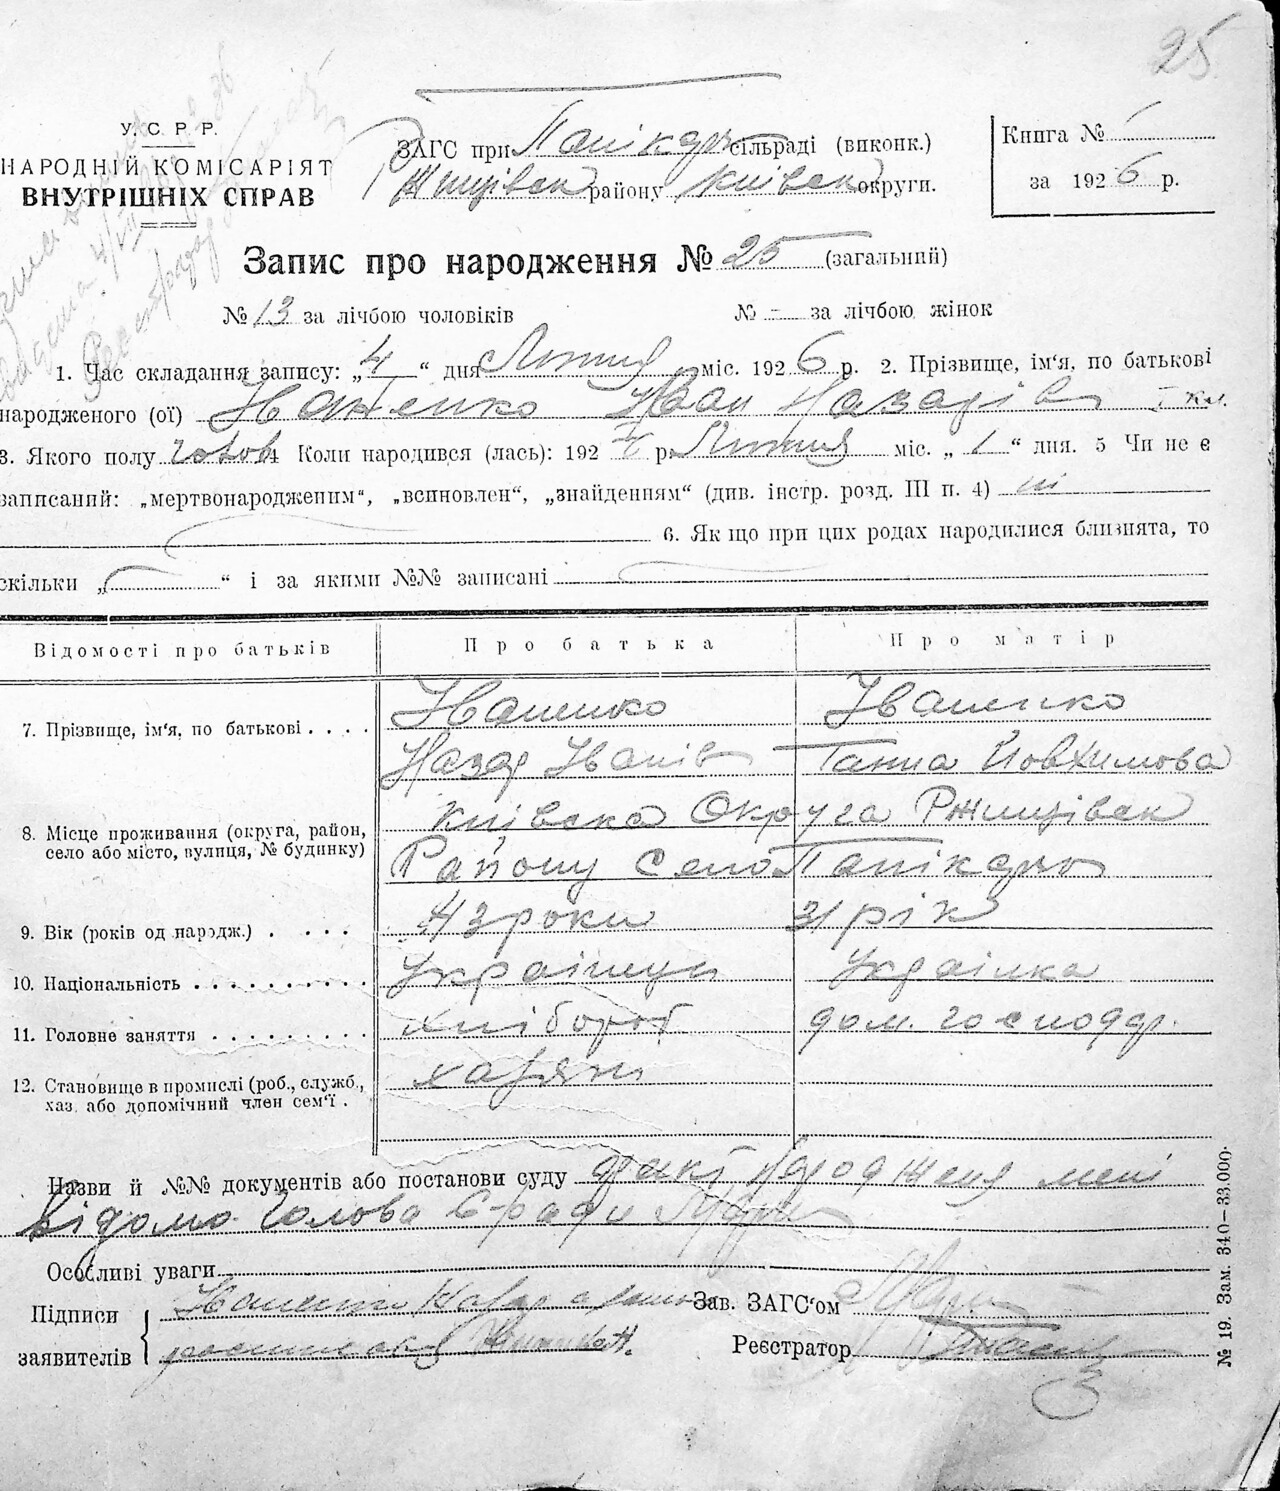 25
У. С. Р. Р.
НАРОДНІЙ КОМІСАРІЯТ
ВНУТРІШНІХ СПРАВ
ЗАГС при Папікарн сільраді (виконк.)
Ржищівск району Київск округи.
Книга № 1
за 1926 р.
Запис про народження № 25 (загальний)
№ 13 за лічбою чоловіків № - за лічбою жінок
1. Час складання запису: „4“ дня Лютня міс. 1926 р. 2. Прізвище, ім'я, по батькові
народженого (ої) Іваненко Іван Назарів
3. Якого полу чолов 4 Коли народився (лась): 192 р. Лютня міс. „1“ дня. 5 Чи не є
записаний: „мертвонародженим“, „всиновлен“, „знайденням“ (див. інстр. розд. III п. 4) ні
6. Якщо при цих родах народилися близнята, то
скільки „ “ і за якими №№ записані
Відомості про батьків Про батька Про матір
7. Прізвище, ім'я, по батькові . . . . Іваненко Іваненко
Назар Іванів Ганна Йовхимова
8. Місце проживання (округа, район, Київска Округа Ржищівск
село або місто, вулиця, № будинку) Району Село Папікарн
9. Вік (років од народж.) . . . . . 43 роки 31 рік
10. Національність . . . . . . . . . . Українци Українка
11. Головне заняття . . . . . . . . . хлібороб дом. господар.
12. Становище в промислі (роб., служб., хазяин
хаз. або допомічний член сем'ї .
Назви й №№ документів або постанови суду факт народженя мені
відомо Голова С-ради
Особливі уваги
Підписи Іваненко Назар а Зав. ЗАГС'ом
заявителів Реєстратор
№ 19. Зам. 340—33.000.